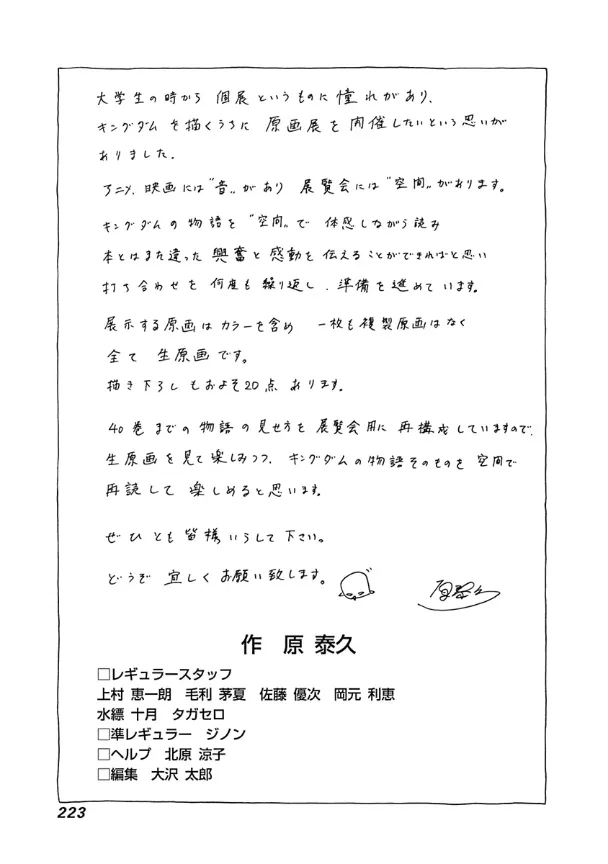 大学生の時から 個展というものに憧れがあり、
キングダムを描くうちに 原画展を開催したいという思いが
ありました。
アニメ、映画には"音"があり 展覧会には"空間"があります。
キングダムの物語を "空間"で 体感しながら読み
本とはまた違った 興奮と感動を伝えることができればと思い
打ち合わせを 何度も繰り返し、準備を進めています。
展示する原画はカラーを含め 一枚も複製原画はなく
全て 生原画です。
描き下ろしもおよそ20点 あります。
40巻までの物語の見せ方を展覧会用に再構成していますので、
生原画を見て楽しみつつ、キングダムの物語そのものを空間で
再読して 楽しめると思います。
ぜひとも皆様いらして下さい。
どうぞ 宜しくお願い致します。
原泰久
作 原 泰久
□レギュラースタッフ
上村 恵一朗 毛利 茅夏 佐藤 優次 岡元 利恵
水縹 十月 タガセロ
□準レギュラー ジノン
□ヘルプ 北原 涼子
□編集 大沢 太郎
223